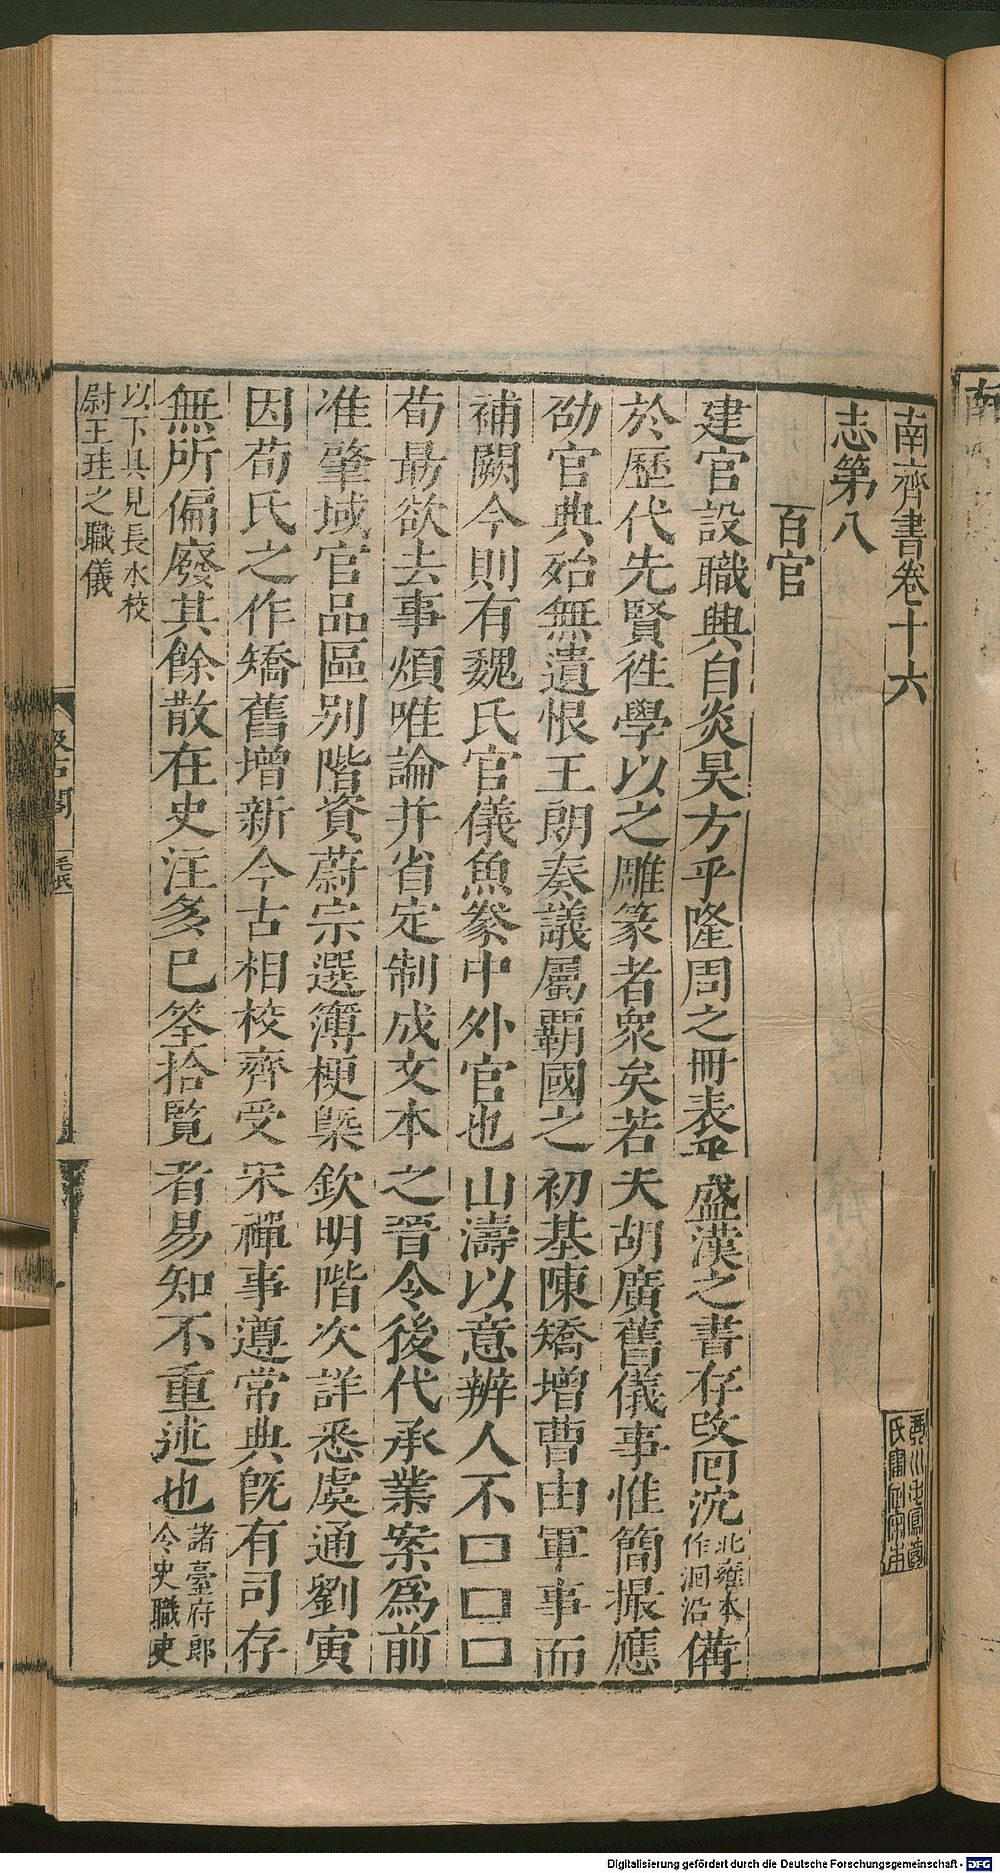 南齊書卷十六
志第八
百官
建官設職興自炎昊方乎隆周之冊表平盛漢之書存改回沈北雍本作洄沿備
於歷代先賢徃學以之雕篆者衆矣若夫胡廣舊儀事惟簡撮應
劭官典殆無遺恨王朗奏議屬霸國之初基陳矯增曹由軍事而
補闕今則有魏氏官儀魚豢中外官也山濤以意辨人不囗囗囗
荀勗欲去事煩唯論并省定制成文本之晉令後代承業案爲前
准肇域官品區别階資蔚宗選簿梗槩欽明階次詳悉虞通劉寅
因荀氏之作矯舊增新今古相校齊受宋禪事遵常典旣有司存
無所偏廢其餘散在史注多已筌拾覽者易知不重述也諸臺府郎令史職吏
以下具見長水校
尉王珪之職儀
汲古閣
毛氏
Digitalisierung gefördert durch die Deutsche Forschungsgemeinschaft - DFG